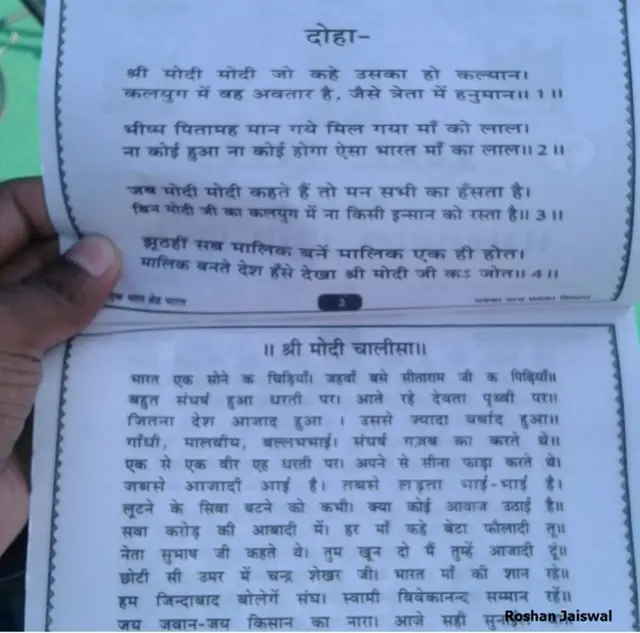 दोहा-
श्री मोदी मोदी जो कहे उसका हो कल्यान।
कलयुग में वह अवतार है, जैसे त्रेता में हनुमान॥ 1 ॥
भीष्म पितामह मान गये मिल गया माँ को लाल।
ना कोई हुआ ना कोई होगा ऐसा भारत माँ का लाल॥ 2 ॥
जब मोदी मोदी कहते हैं तो मन सभी का हँसता है।
बिन मोदी जी का कलयुग में ना किसी इन्सान को रस्ता है॥ 3 ॥
झूठहीं सब मालिक बनें मालिक एक ही होत।
मालिक बनते देश हँसे देखा श्री मोदी जी कऽ जोत॥ 4 ॥
एक भारत श्रेष्ठ भारत
2
सबका साथ सबका विकास
॥ श्री मोदी चालीसा॥
भारत एक सोने क चिड़ियाँ। जहवाँ बसे सीताराम जी क पिढ़ियाँ॥
बहुत संघर्ष हुआ धरती पर। आते रहे देवता पृथ्वी पर॥
जितना देश आजाद हुआ । उससे ज्यादा बर्बाद हुआ॥
गाँधी, मालवीय, बल्लभभाई। संघर्ष गज़ब का करते थे॥
एक से एक वीर एह धरती पर। अपने से सीना फाड़ा करते थे।
जबसे आजादी आई है। तबसे लड़ता भाई-भाई है।
लूटने के सिवा बटने को कभी। क्या कोई आवाज उठाई है॥
सवा करोड़ की आबादी में। हर माँ कहे बेटा फौलादी तू॥
नेता सुभाष जी कहते थे। तुम खून दो मैं तुम्हें आजादी दूं॥
छोटी सी उमर में चन्द्र शेखर जी। भारत माँ की शान रहे॥
हम जिन्दाबाद बोलेगें संघ। स्वामी विवेकानन्द सम्मान रहें॥
जय जवान-जय किसान का नारा। आजे सही
Roshan Jaiswal